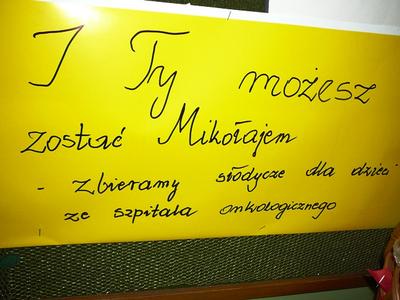 I Ty możesz
zostać Mikołajem
- zbieramy słodycze dla dzieci
ze szpitala onkologicznego